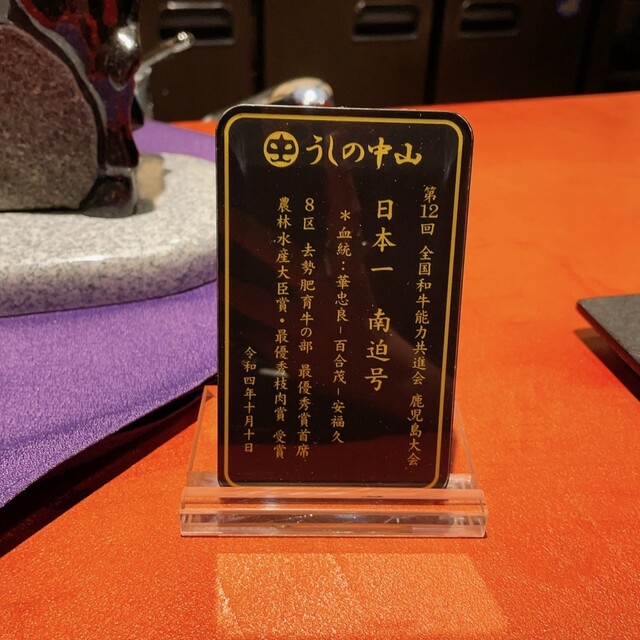 うしの中山
第12回 全国和牛能力共進会 鹿児島大会
日本一 南迫号
＊血統：華忠良－百合茂－安福久
8区 去勢肥育牛の部 最優秀賞首席
農林水産大臣賞・最優秀枝肉賞 受賞
令和四年十月十日